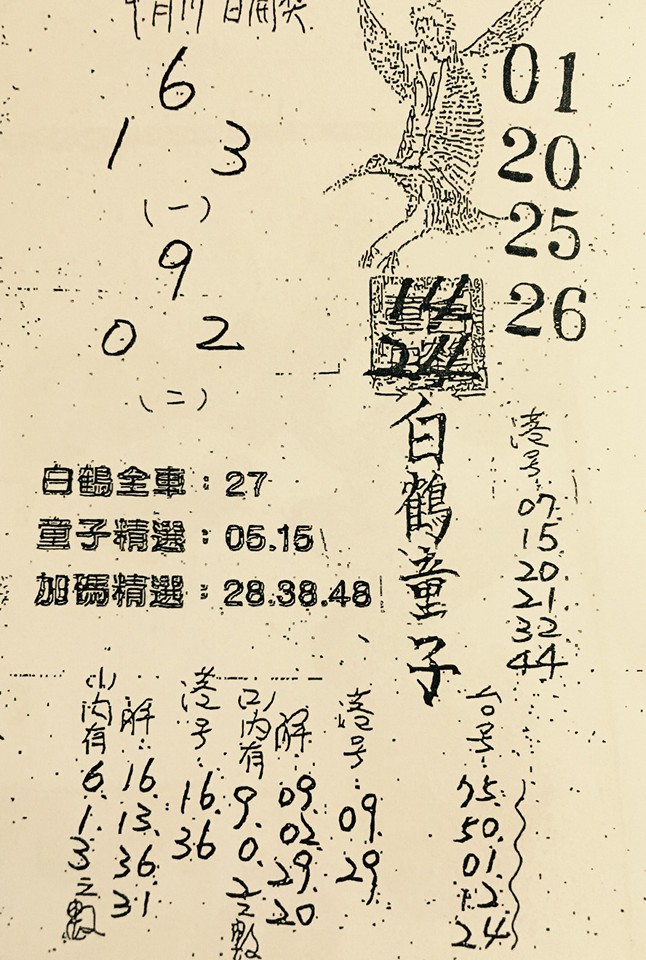 月 日開獎
6
1 3
(一)
9
0 2
(二)
01
20
25
26
14
24
白鶴童子
港号:
07
15
20
21
32
44
白鶴全車：27
童子精選：05.15
加碼精選：28.38.48
(1)內有6.1.3之數
解:16.13.36.31
港号:16.36
(2)內有9.0.2之數
解:09.02.29.20
港号:09.29
台号:75.50.01.12.24